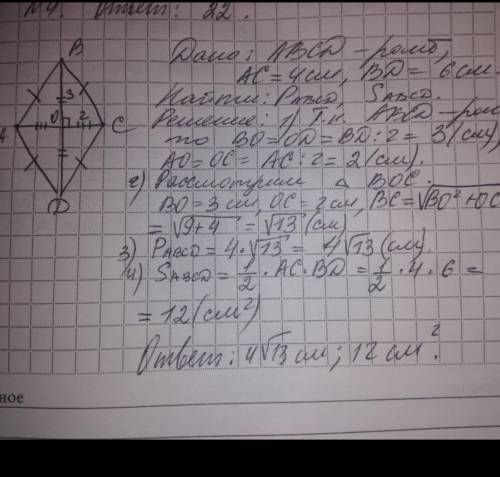 N4. Ответ: 22.
B
Дано: ABCD - ромб,
AC = 4 см, BD = 6 см.
Найти: P ABCD, S ABCD.
Решение: 1) Т.к. ABCD - ром
то BO = OD = BD : 2 = 3 (см)
AO = OC = AC : 2 = 2 (см).
A O 3 2 C
D
2) Рассмотрим △ BOC.
BO = 3 см, OC = 2 см, BC = √BO² + OC
= √9+4 = √13 (см)
3) P ABCD = 4 · √13 = 4√13 (см)
4) S ABCD = 1/2 · AC · BD = 1/2 · 4 · 6 =
= 12 (см²)
Ответ: 4√13 см; 12 см².
ное